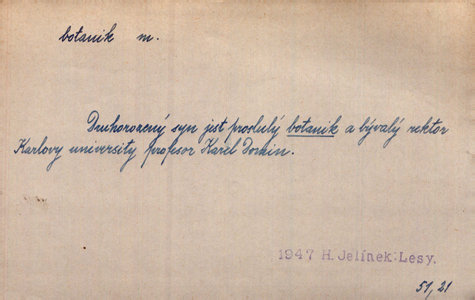 botanik m.
Druhorozený syn jest proslulý botanik a bývalý rektor
Karlovy university profesor Karel Domin.
1947 H. Jelínek: Lesy.
51, 21